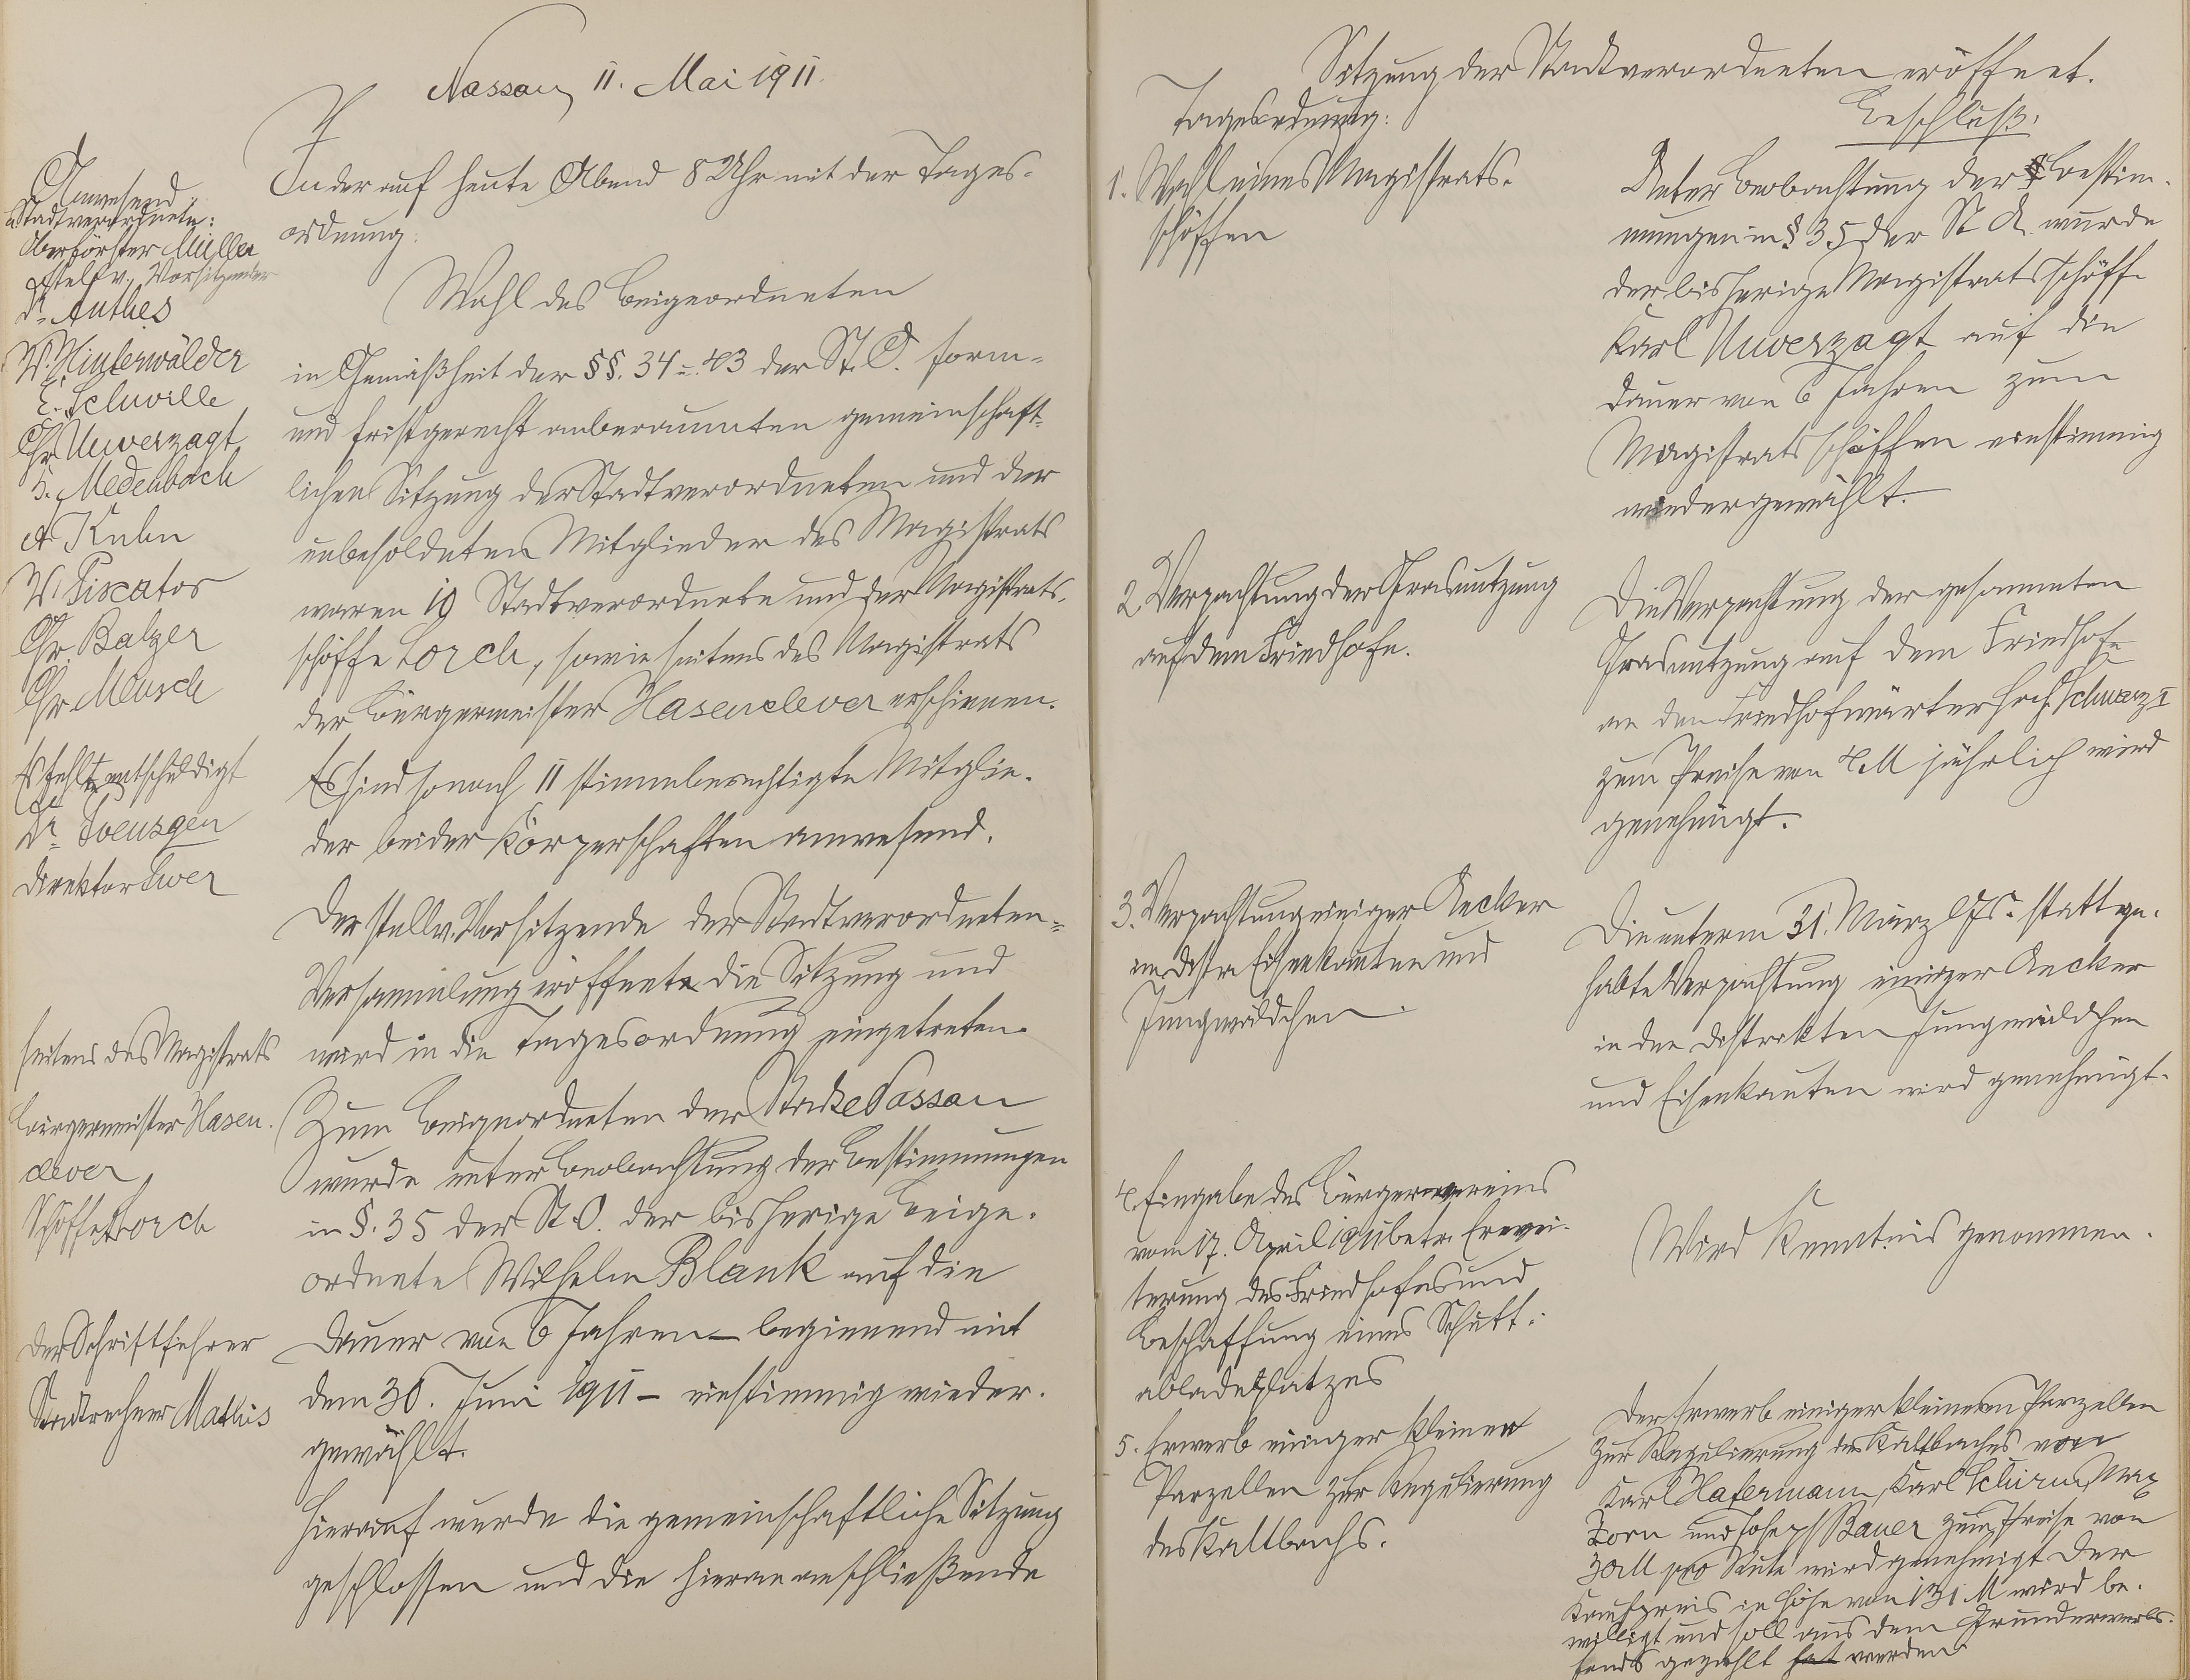 Nassau, 11. Mai 1911.
Anwesend
a. Stadtverordnete:
Oberförster Müller
stellv. Vorsitzender
Dr. Anthes
W. Hinterwälder
E. Schuville
Chr. Unverzagt
H. Medenbach
A Kuhn
W. Piscator
Chr. Balzer
Chr. Meusch
Es fehlte entschuldigt
Dr.
Direktor
seitens des Magistrats
Bürgermeister Hasen-
clever
Schöffe Lorch
Der Schriftführer
Stadtrechner Mathis
In der auf heute Abend 8 Uhr mit der Tages-
ordnung:
Wahl des Beigeordneten
in Gemäßheit der §§. 34 - 43 der St. O. form-
und fristgerecht anberaumten gemeinschaft-
lichen Sitzung der Stadtverordneten und der
unbesoldeten Mitglieder des Magistrats
waren 10 Stadtverordnete und der Magistrats-
schöffe Lorch, sowie seitens des Magistrats
der Bürgermeister Hasenclever erschienen.
Es sind sonach 11 stimmberechtigte Mitglie-
der beider Körperschaften anwesend.
Der stellv. Vorsitzende der Stadtverordneten-
Versammlung eröffnete die Sitzung und
wird in die Tagesordnung eingetreten.
Zum Beigeordneten der Stadt Nassau
wurde unter Beobachtung der Bestimmungen
in §. 35 der St. O. der bisherige Beige-
ordnete Wilhelm Blank auf die
Dauer von 6 Jahren – beginnend mit
dem 30. Juni 1911 – einstimmig wieder-
gewählt.
Hierauf wurde die gemeinschaftliche Sitzung
geschlossen und die hieran anschließende
Sitzung der Stadtverordneten eröffnet.
Tagesordnung:
Beschluß:
1. Wahl eines Magistrats-
schöffen
Unter Beobachtung der Bestim-
mungen in § 35 der St O. wurde
der bisherige Magistratsschöffe
Karl Unverzagt auf die
Dauer von 6 Jahren zum
Magistratsschöffen einstimmig
wiedergewählt.
2. Verpachtung der Grasnutzung
auf dem Friedhofe.
Die Verpachtung der gesammten
Grasnutzung auf dem Friedhofe
an den Friedhofwärter Hch. Schwarz I
zum Preise von 4 M jährlich wird
genehmigt.
3. Verpachtung einiger Aecker
im Distr. Eisenkauten und
Jungwäldchen.
Die unterm 31. März lfs. Js. stattge-
habte Verpachtung einiger Aecker
in den Distrikten Jungwäldchen
und Eisenkauten wird genehmigt.
4. Eingabe des Bürgervereins
vom 17. April 1911 betr. Erwei-
terung des Friedhofes und
Beschaffung eines Schutt-
abladeplatzes
Wird Kenntnis genommen.
5. Erwerb einiger kleiner
Parzellen zur Regulierung
des Kaltbachs.
Der Erwerb einiger kleineren Parzellen
zur Regulierung des Kaltbaches von
Karl Hafermann, Karl Schirm, Max
Zorn und Joseph Bauer zum Preise von
30 M pro Rute wird genehmigt Der
Kaufpreis in Höhe von 131 M wird be-
willigt und soll aus dem Grunderwerbs-
fonds gezahlt hat werden